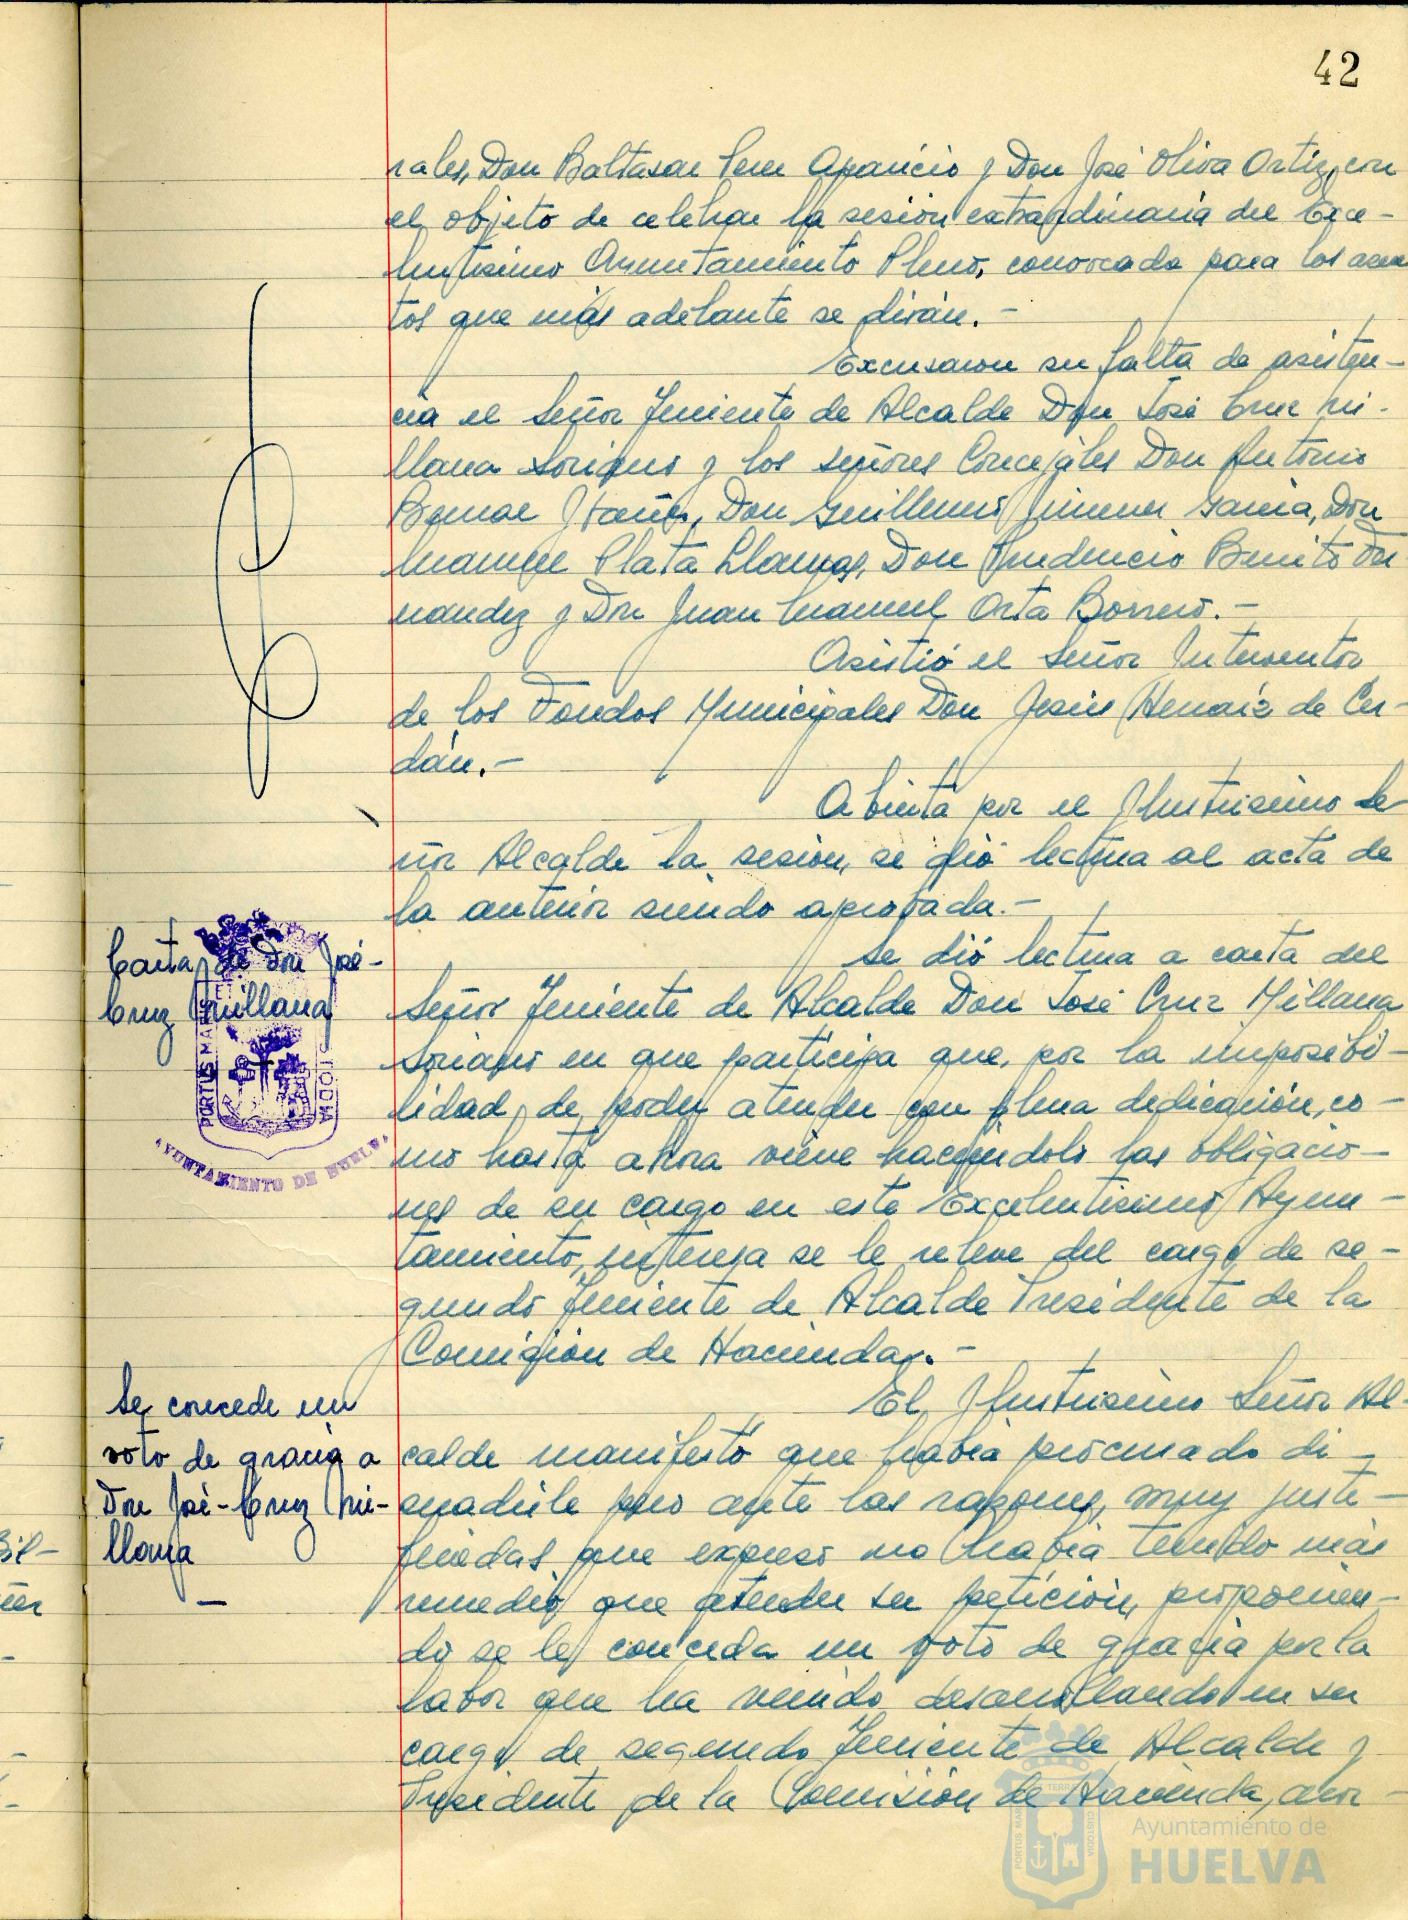 42
rales, Don Baltasar Aparicio y Don José Oliva Ortiz, con
el objeto de celebrar la sesión extraordinaria del Exce-
lentisimo Ayuntamiento Pleno, convocada para los asun
tos que más adelante se dirán.-
Excusaron su falta de asisten-
cia el Señor Teniente de Alcalde Don José Cruz Mi-
llana Soriano y los señores Concejales Don Antonio
Don Guillermo Jimenez Garcia, Don
Manuel Plata Llamas, Don Prudencio Benito Fer
nandez y Don Juan Manuel Orta Borrero.-
Asistió el Señor Interventor
de los Fondos Municipales Don Jesús Henaiz de Cer-
dán.-
Abierta por el Ilustrisimo Se
ñor Alcalde la sesión, se dió lectura al acta de
la anterior siendo aprobada.-
Carta de Don José-
Cruz Millana
Se dió lectura a carta del
Señor Teniente de Alcalde Don José Cruz Millana
Soriano en que participa que, por la imposibi-
lidad, de poder atender con plena dedicación, co-
mo hasta ahora viene haciéndolo las obligacio-
nes de su cargo en este Excelentisimo Ayun-
tamiento, interesa se le releve del cargo de se-
gundo Teniente de Alcalde Presidente de la
Comisión de Hacienda.-
PORTUS MARIS ET CUSTODIA
AYUNTAMIENTO DE HUELVA
Se concede un
voto de gracia a
Don José-Cruz Mi-
llana
-
El Ilustrisimo Señor Al-
calde manifestó que habia procurado di-
suadirle pero ante las razones, muy justi-
ficadas que expuso no habia tenido más
remedio que atender su petición, proponien-
do se le conceda un voto de gracia por la
labor que ha venido desarrollando en su
cargo de segundo Teniente de Alcalde y
Presidente de la Comisión de Hacienda, acor-
Ayuntamiento de
HUELVA